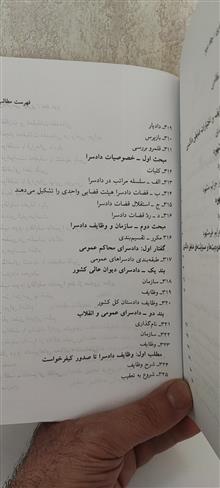 فهرست مطالب
۳۰۹ـ دادیار
۳۱۰ـ بازپرس
۳۱۱ـ قلمرو بررسی
مبحث اول ـ خصوصیات دادسرا
۳۱۲ـ کلیات
۳۱۳ـ الف ـ سلسله مراتب در دادسرا
۳۱۴ـ ب ـ قضات دادسرا هیئت قضایی واحدی را تشکیل می‌دهند
۳۱۵ـ ج ـ استقلال قضات دادسرا
۳۱۶ـ د ـ ردّ قضات دادسرا
مبحث دوم ـ سازمان و وظایف دادسرا
۳۱۶ مکرر ـ تقسیم‌بندی
گفتار اول ـ دادسرای محاکم عمومی
۳۱۷ـ طبقه‌بندی دادسراهای عمومی
بند یک ـ دادسرای دیوان عالی کشور
۳۱۸ـ سازمان
۳۱۹ـ وظایف
۳۲۰ـ وظایف دادستان کل کشور
بند دو ـ دادسرای عمومی و انقلاب
۳۲۱ـ نام‌گذاری
۳۲۲ـ سازمان
۳۲۳ـ وظایف
مطلب اول: وظایف دادسرا تا صدور کیفرخواست
۳۲۴ـ شرح وظایف
۳۲۵ـ شروع به تعقیب